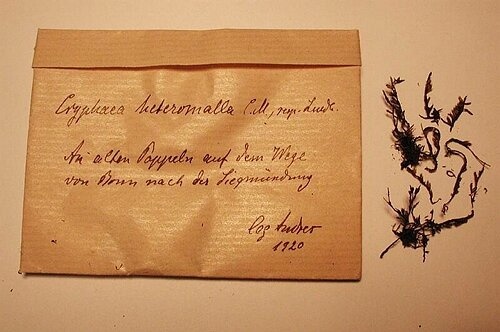 Cryphaea heteromalla C.M.,
An alten Pappeln auf dem Wege
von Bonn nach der Siegmündung
leg Andres
1920